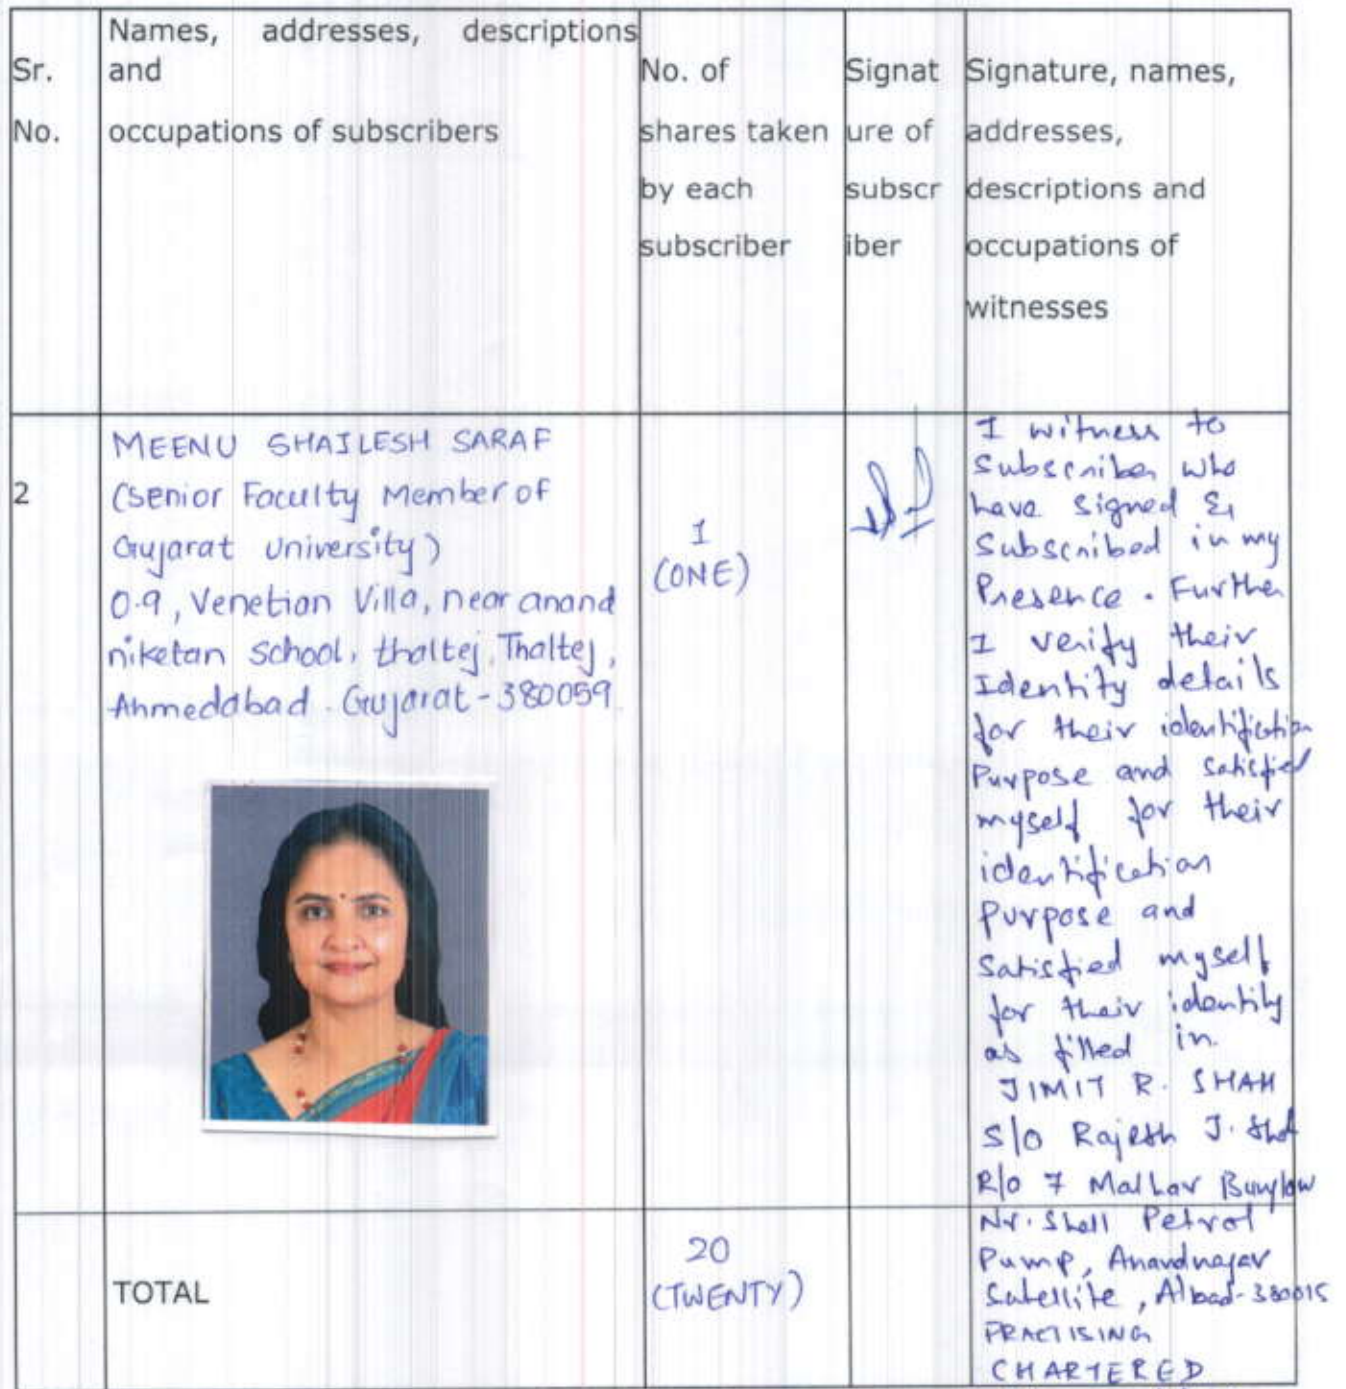 Sr.
No.
Names, addresses, descriptions
and
occupations of subscribers
No. of
shares taken
by each
subscriber
Signat
ure of
subscr
iber
Signature, names,
addresses,
descriptions and
occupations of
witnesses
2
MEENU SHAILESH SARAF
(Senior Faculty Member of
Gujarat University)
0.9, Venetian Villa, near anand
niketan School, thaltej, Thaltej,
Ahmedabad. Gujarat-380059.
1
(ONE)
I witness to
Subscriber who
have signed &
Subscribed in my
Presence. Further
I verify their
Identity details
for their identification
Purpose and satisfied
myself for their
identification
purpose and
satisfied myself
for their identity
as filled in.
JIMIT R. SHAH
S/O Rajesh J. Shah
R/o 7 Malhar Bunglow
Nr. Shell Petrol
Pump, Anandnagar
Satellite, A'bad-380015
PRACTISING
CHARTERED
TOTAL
20
(TWENTY)